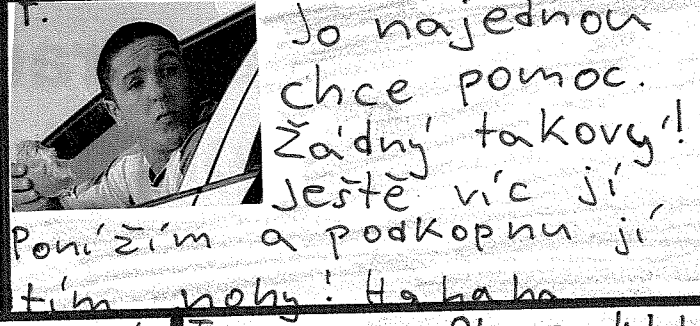 T.
Jo najednou
chce pomoc.
Žádný takový!
Ještě víc jí
Ponížím a podkopnu jí
tím nohy! Ha ha ha